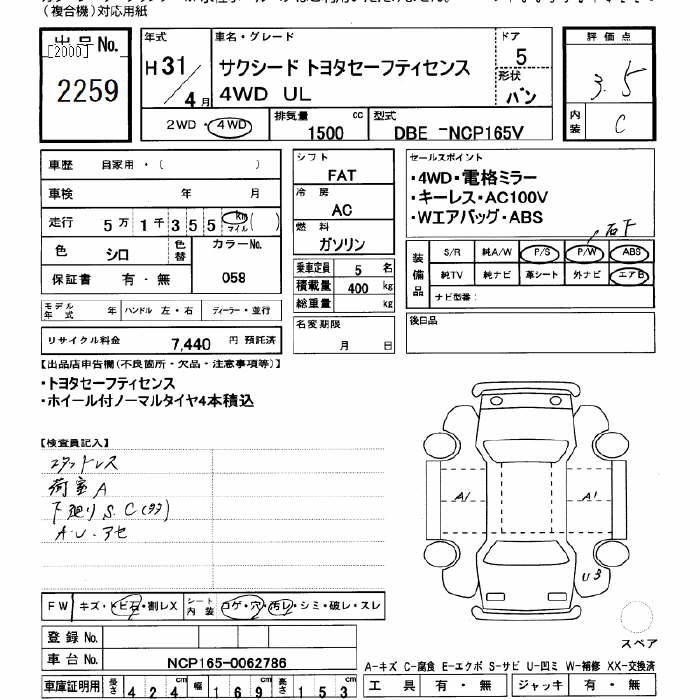 （複合機）対応用紙
出品No.
[2000]
2259
年式
H 31/4月
車名・グレード
サクシード トヨタセーフティセンス
4WD UL
ドア
5
形状
バン
評価点
3.5
内装
C
2WD・4WD
排気量
1500 cc
型式
DBE -NCP165V
車歴 自家用・（ ）
車検 年 月
走行 5万1千355 km マイル （ ）
色 シロ 色替 カラーNo. 058
保証書 有・無
モデル年式 年 ハンドル 左・右 ディーラー・並行
リサイクル料金 7,440 円 預託済
シフト
FAT
冷房
AC
燃料
ガソリン
乗車定員 5 名
積載量 400 kg
総重量 kg
名変期限
月 日
セールスポイント
・4WD・電格ミラー
・キーレス・AC100V
・Wエアバッグ・ABS
右下
装備品
S/R 純A/W P/S P/W ABS
純TV 純ナビ 革シート 外ナビ エアB
ナビ型番：
後日品
【出品店申告欄(不良箇所・欠品・注意事項等)】
・トヨタセーフティセンス
・ホイール付ノーマルタイヤ4本積込
【検査員記入】
スタットレス
荷室A
下廻りS.C(タタ)
A.U.アセ
A1
A1
U3
FW キズ・トビ石・割レX シート内装 コゲ・穴・汚レ・シミ・破レ・スレ
登録No.
車台No. NCP165-0062786
車庫証明用 長さ 424 cm 幅 169 cm 高さ 153 cm
スペア
A-キズ C-腐食 E-エクボ S-サビ U-凹ミ W-補修 XX-交換済
工具 有・無 ジャッキ 有・無